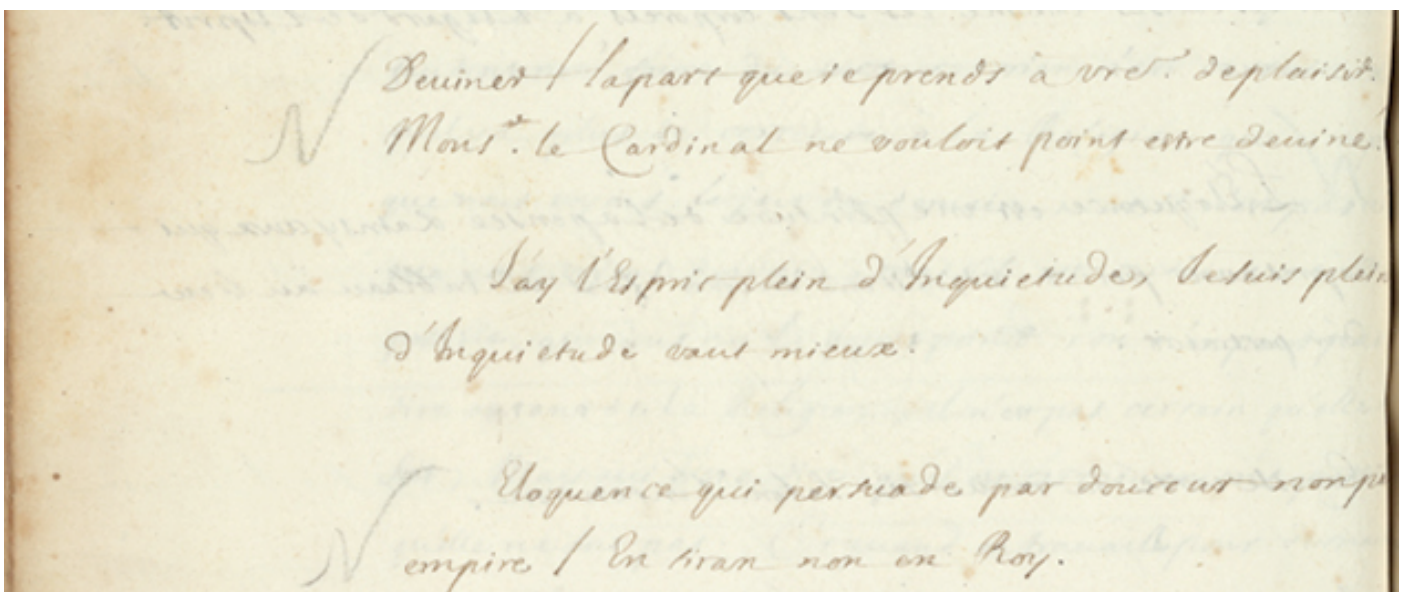 Deuiner / la part que ie prends a vre. deplaisir.
Monsr. le Cardinal ne vouloit point estre deuiné.
J'ay l'Esprit plein d'Inquietude, Je suis plein
d'Inquietude vaut mieux.
Eloquence qui persuade par douceur non p
empire / En tiran non en Roy.